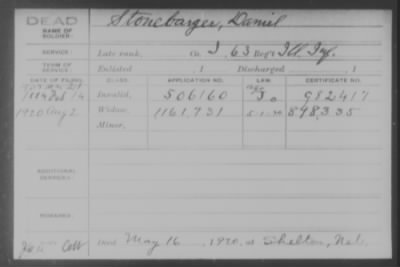 DEAD
NAME OF SOLDIER: Stonebarger, Daniel
SERVICE: Late rank, Co. I, 63 Reg't Ill. Inf.
TERM OF SERVICE: Enlisted , 1 Discharged , 1
DATE OF FILING. CLASS. APPLICATION NO. LAW. CERTIFICATE NO.
1884 Feb 14 Invalid, 506160 982417
1920 Aug 2 Widow, 1161,731 5-1-20 898,335
Minor,
ADDITIONAL SERVICES:
REMARKS:
Died May 16 1920, at Shelton, Neb.